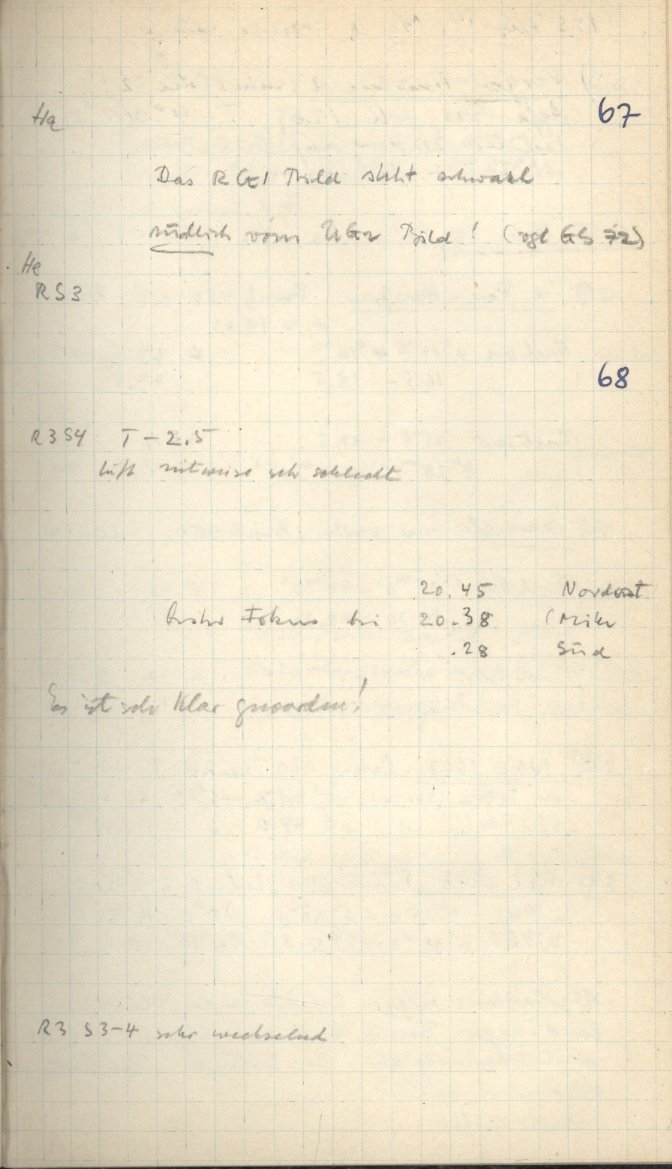 67
Ha
Das RG1 Bild steht schwach
südlich vom UG2 Bild! (vgl GB 72)
He
RS3
68
R3S4 T-2.5
Luft zeitweise sehr schlecht
20.45 Nordost
bester Fokus bei 20.38 (Mitte
.28 Süd
Es ist sehr klar geworden!
R3 S3-4 sehr wechselnd